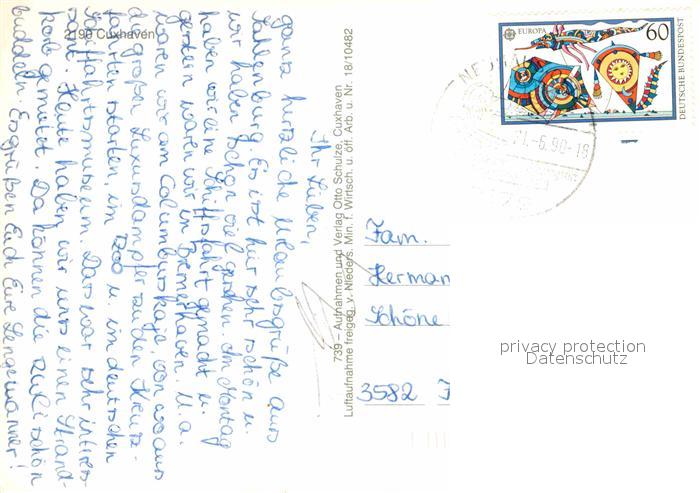 Ihr Lieben,
ganz herzliche Urlaubsgrüße aus
Sahlenburg. Es ist hier sehr schön u.
wir haben schon viel gesehen. Am Montag
haben wir eine Schiffsfahrt gemacht u.
gestern waren wir in Bremerhaven. U. a.
waren wir am Columbuskaje, von wo aus
die großen Luxusdampfer zu den Kreuz-
fahrten starten, im Zoo u. im deutschen
Schiffahrtsmuseum. Das war sehr interes-
sant. Heute haben wir uns einen Strand-
korb gemietet. Da können die schön
buddeln. Es grüßen Euch Eure
2190 Cuxhaven
739 – Aufnahmen und Verlag Otto Schulze, Cuxhaven
Luftaufnahme freigeg. v. Nieders. Min. f. Wirtsch. u. öff. Arb. u. Nr. 18/10482
EUROPA
60
DEUTSCHE BUNDESPOST
-6.90-18
Fam.
Herman
Schöne
3582
privacy protection
Datenschutz